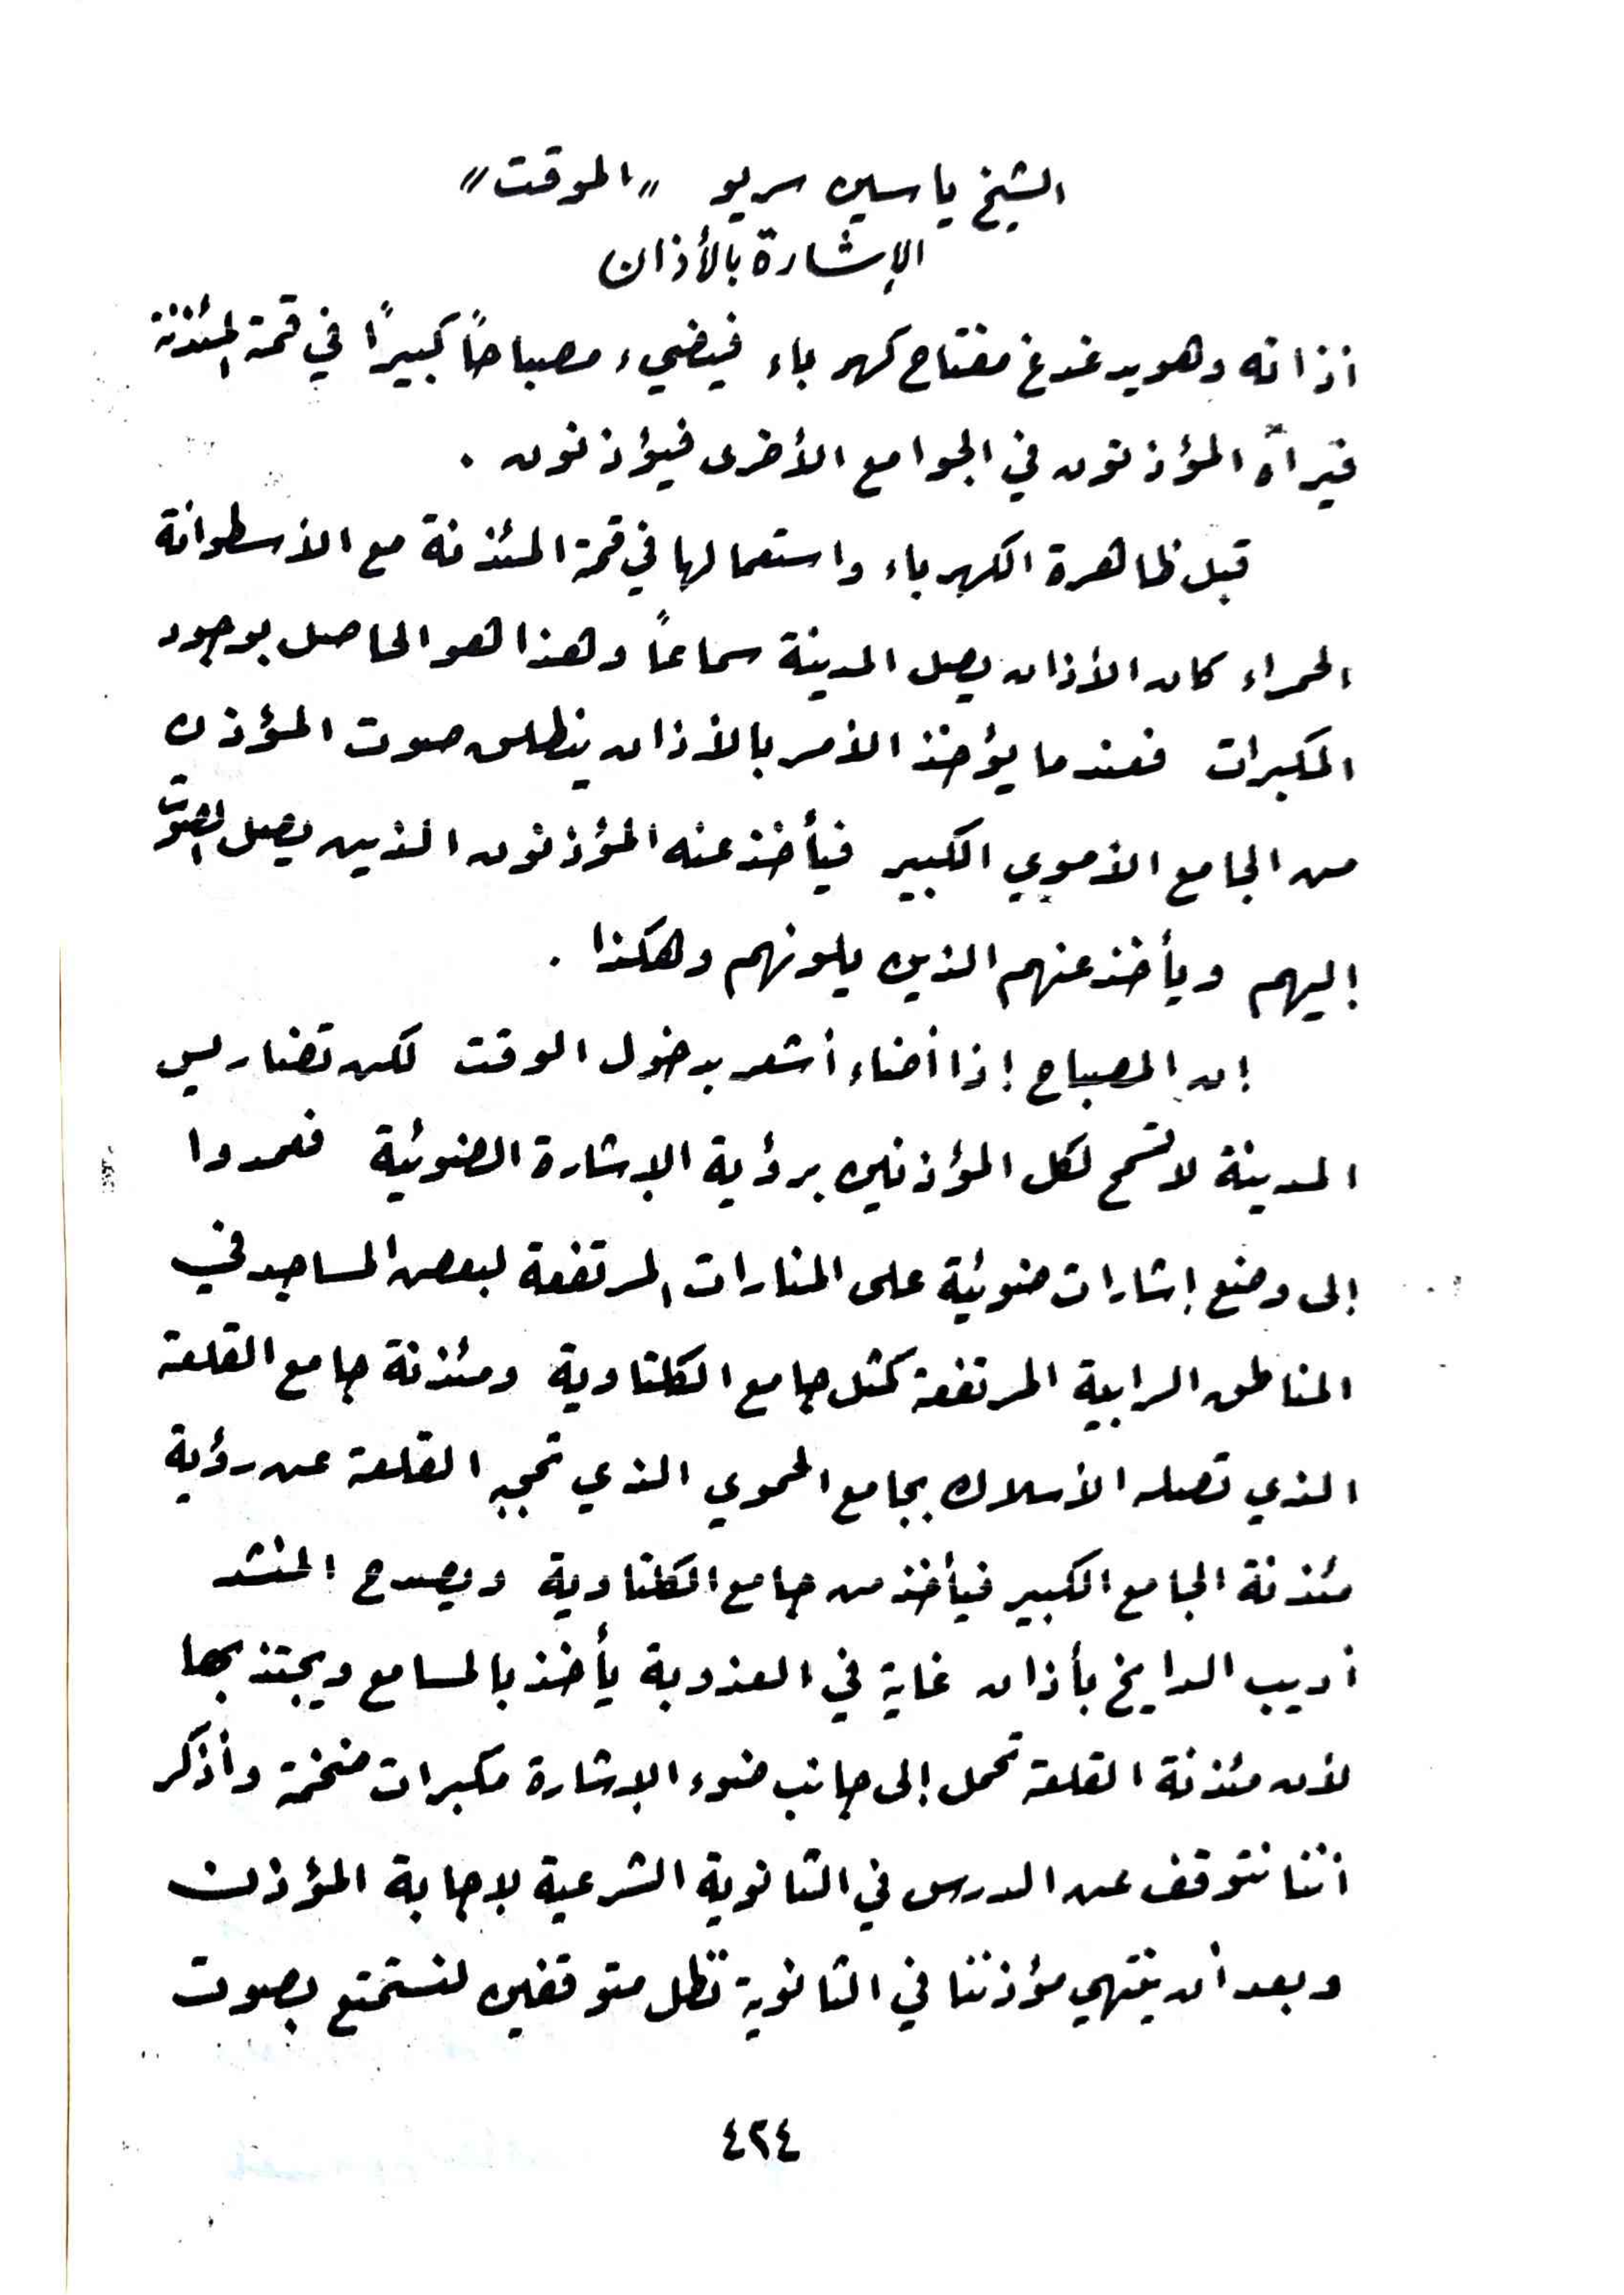 الشيخ ياسين سريو "الموقت"
الإشارة بالأذان
أذانه وهو يدغدغ مفتاح كهرباء فيضيء مصباحاً كبيراً في قمة المئذنة
فيراه المؤذنون في الجوامع الأخرى فيؤذنون .
قبل ظاهرة الكهرباء واستعمالها في قمة المئذنة مع الأسطوانة
الحمراء كان الأذان يصل المدينة سماعاً وهذا هو الحاصل بوجود
المكبرات فعندما يؤخذ الأمر بالأذان ينطلق صوت المؤذن
من الجامع الأموي الكبير فيأخذ عنه المؤذنون الذين يصل الصوت
إليهم ويأخذ عنهم الذين يلونهم وهكذا .
إن المصباح إذا أضاء أشعر بدخول الوقت لكن تضاريس
المدينة لا تسمح لكل المؤذنين برؤية الإشارة الضوئية فعمدوا
إلى وضع إشارات ضوئية على المنارات المرتفعة لبعض المساجد في
المناطق الرابية المرتفعة كمثل جامع الكلتاوية ومئذنة جامع القلعة
الذي تصله الأسلاك بجامع الحموي الذي تحجبه القلعة عن رؤية
مئذنة الجامع الكبير فيأخذ من جامع الكلتاوية ويصدح المنشد
أديب الدايخ بأذان غاية في العذوبة يأخذ بالمسامع ويجتذبها
لأن مئذنة القلعة تحمل إلى جانب ضوء الإشارة مكبرات ضخمة وأذكر
أننا نتوقف عن الدرس في الثانوية الشرعية لإجابة المؤذن
وبعد أن ينتهي مؤذننا في الثانوية نظل متوقفين لنستمتع بصوت
٤٢٤